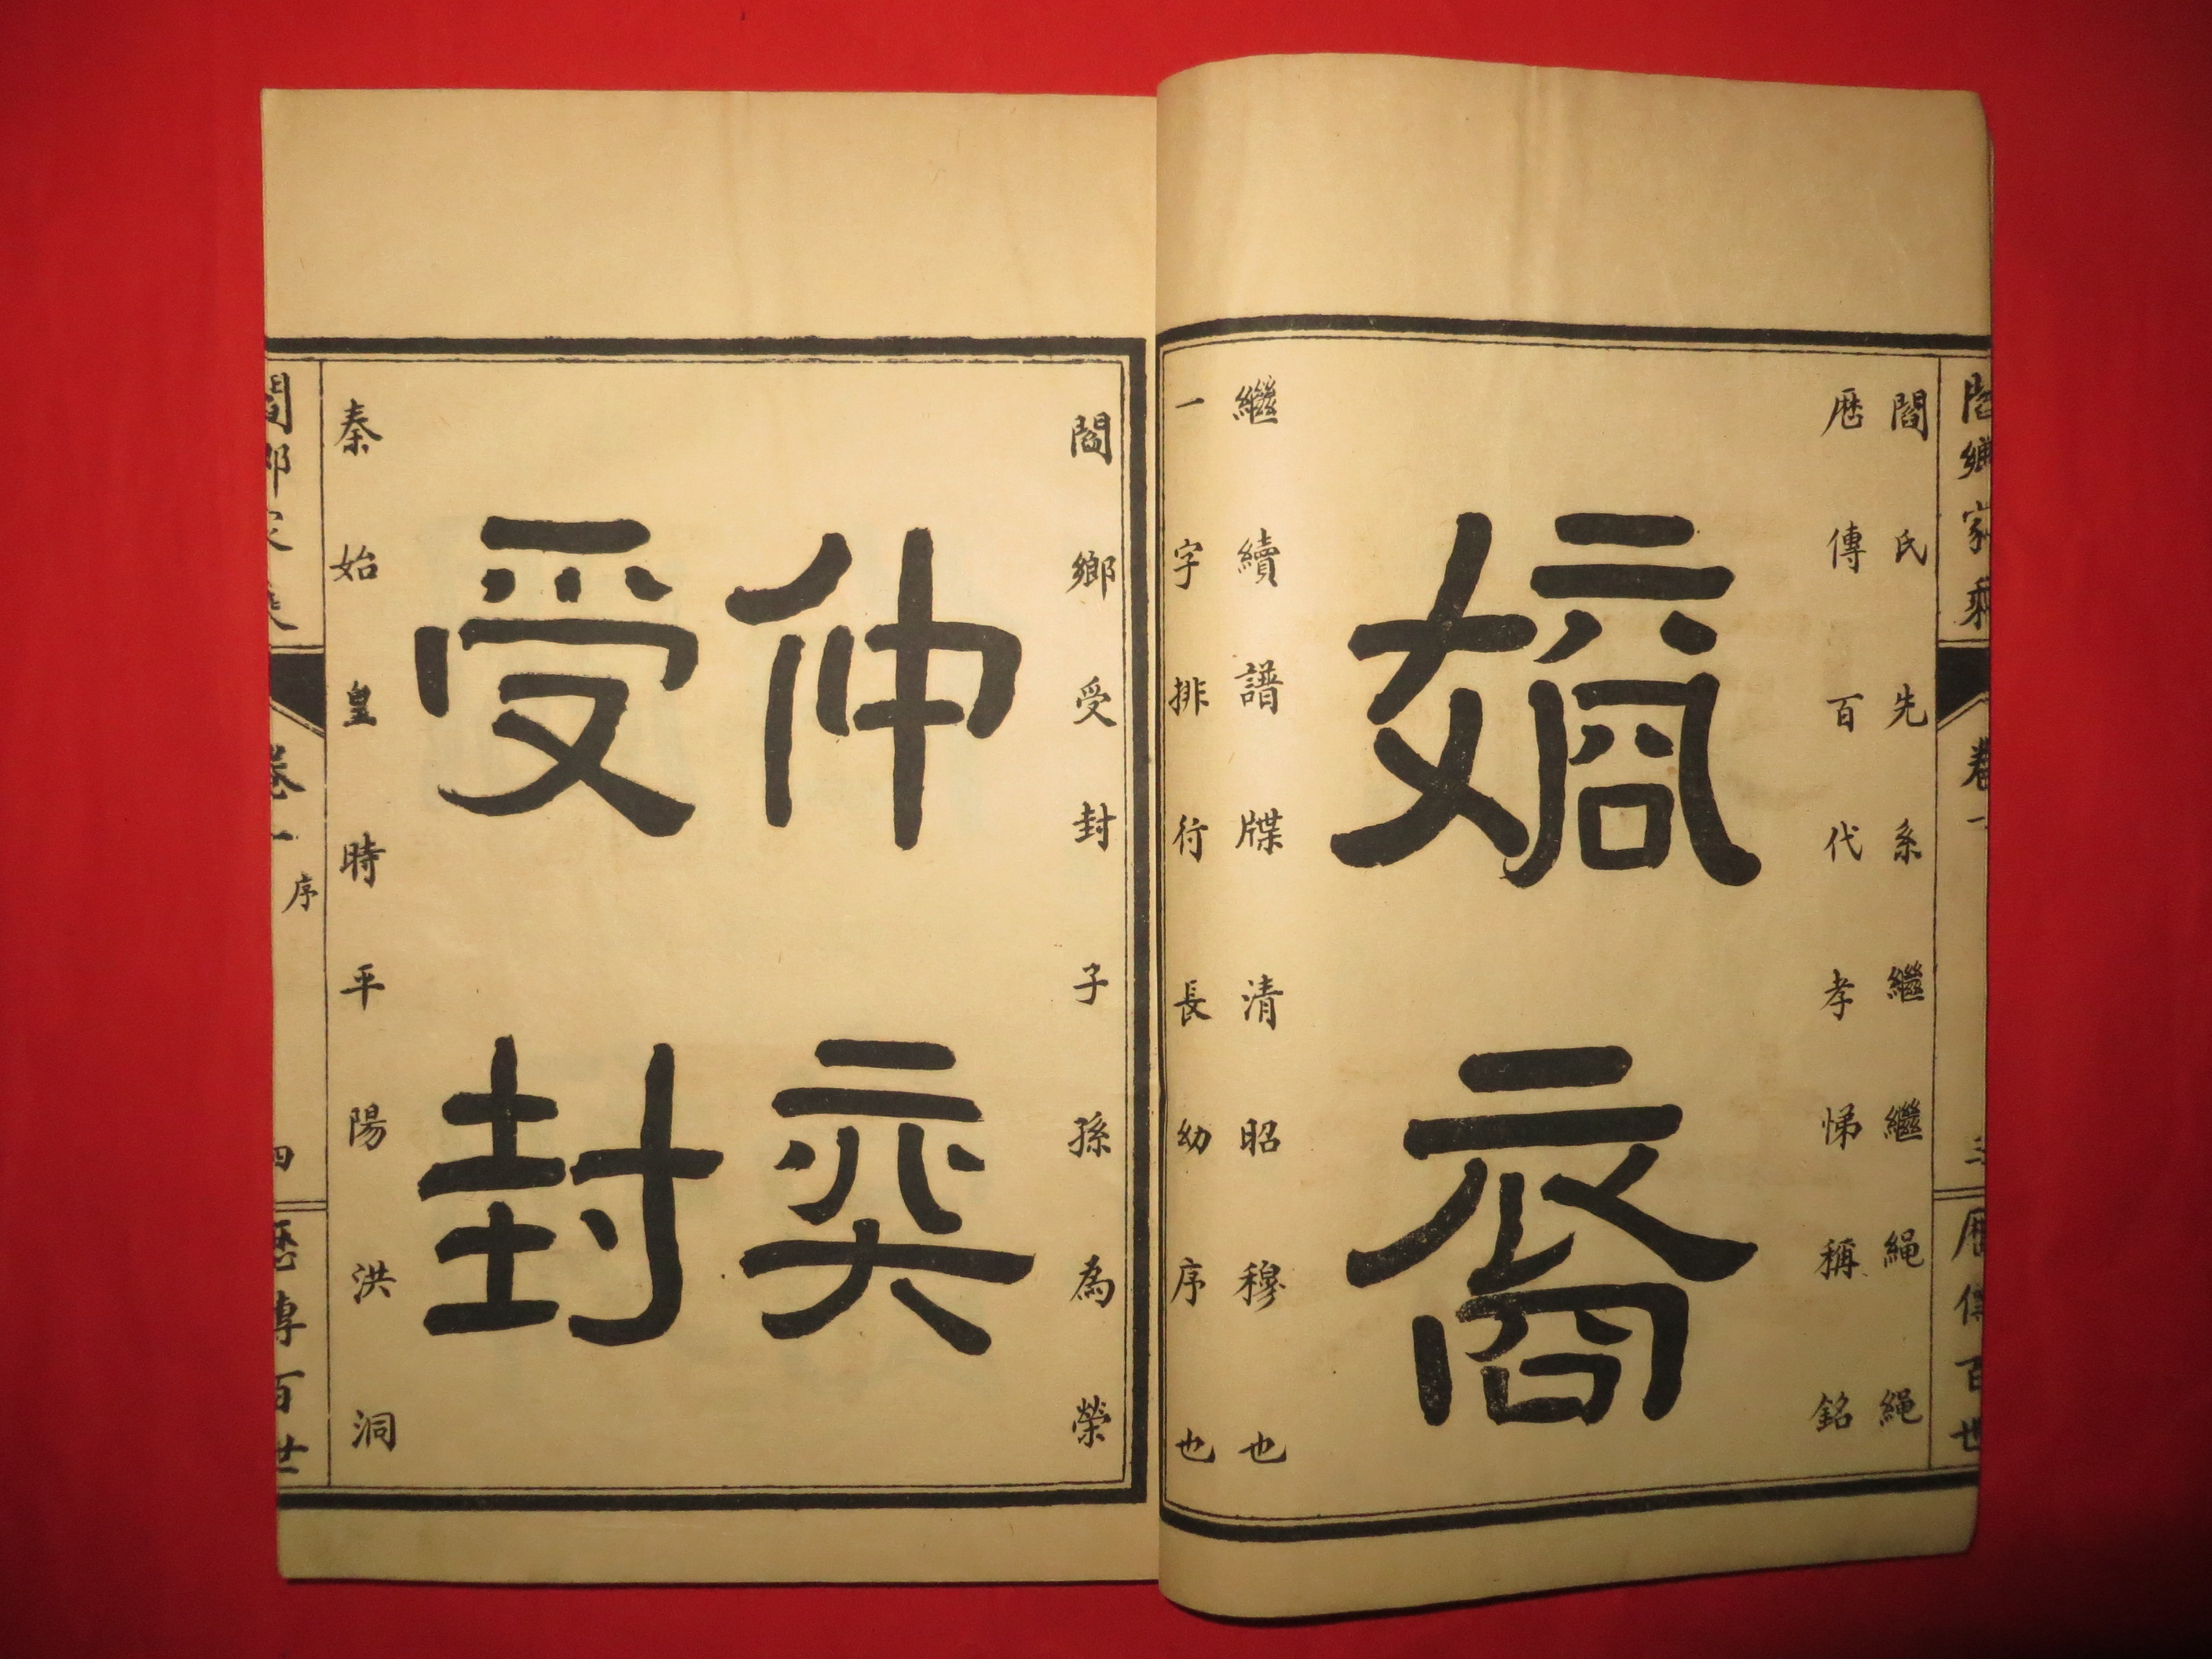 閻鄉家乘
卷一
三
厯傳百世
閻氏先系繼繼繩繩
厯傳百代孝悌稱銘
嫡裔
繼續譜牒清昭穆也
一字排行長幼序也
閻鄉受封子孫為榮
仲奕
受封
秦始皇時平陽洪洞
閻鄉家乘
卷一
序
四
厯傳百世